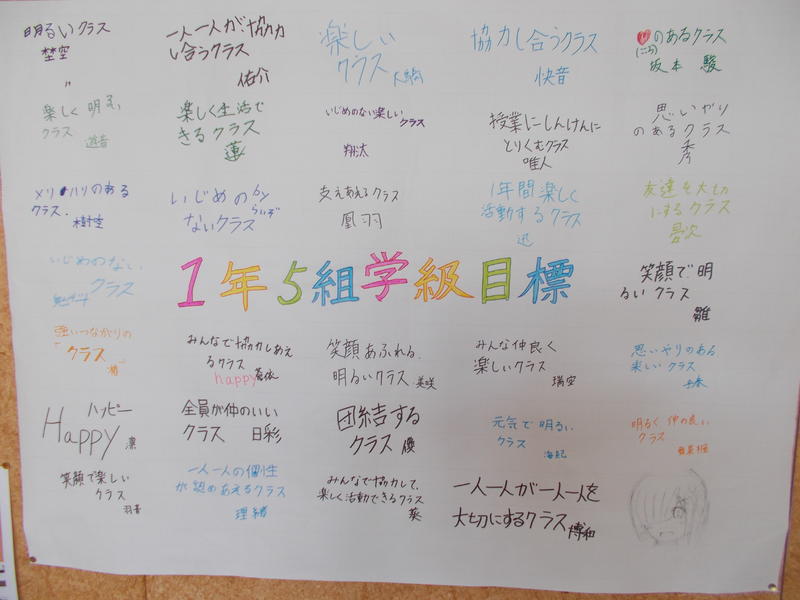 明るいクラス
埜空
〃
一人一人が協力
し合うクラス
佑介
楽しい
クラス
大騎
協力し合うクラス
快音
♥のあるクラス
(こころ)
坂本 駿
楽しく明るい
クラス
遊音
楽しく生活で
きるクラス
蓮
いじめのない楽しい
クラス
翔汰
授業にしんけんに
とりくむクラス
唯人
思いやり
のあるクラス
秀
メリハリのある
クラス.
樹空
いじめの
ないクラス
by
らいぞ
支えあえるクラス
凰羽
1年間楽しく
活動するクラス
迅
友達を大切
にするクラス
いじめのない
クラス
1年5組学級目標
笑顔で明
るいクラス
雛
強いつながりの
「クラス」
みんなで協力しあえ
るクラス
happy
笑顔あふれる
明るいクラス
美咲
みんな仲良く
楽しいクラス
璃空
思いやりのある
楽しいクラス
ハッピー
Happy
凛
全員が仲のいい
クラス 日彩
団結する
クラス 優
元気で明るい
クラス
海紀
明るく仲の良い
クラス
笑顔で楽しい
クラス
羽音
一人一人の個性
が認めあえるクラス
理緒
みんなで協力して、
楽しく活動できるクラス
葵
一人一人が一人一人を
大切にするクラス
博和